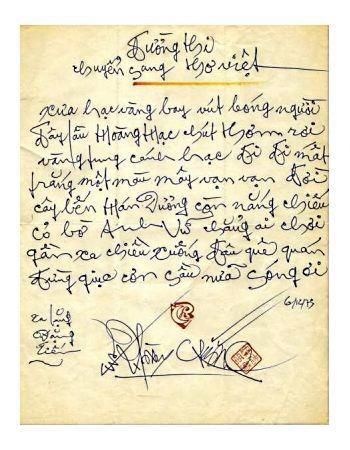 Đường thi
chuyển sang thơ việt
xưa hạc vàng bay vút bóng người
đây lầu Hoàng Hạc chút thơm rơi
vàng tung cánh hạc đi đi mất
trắng một màu mây vạn vạn đời
cây bến Hán Dương còn nắng chiếu
cỏ bờ Anh Vũ chẳng ai chơi
gần xa chiều xuống đâu quê quán
đừng giục cơn sầu nữa sóng ơi
tặng
Vũ Hoàng Chương